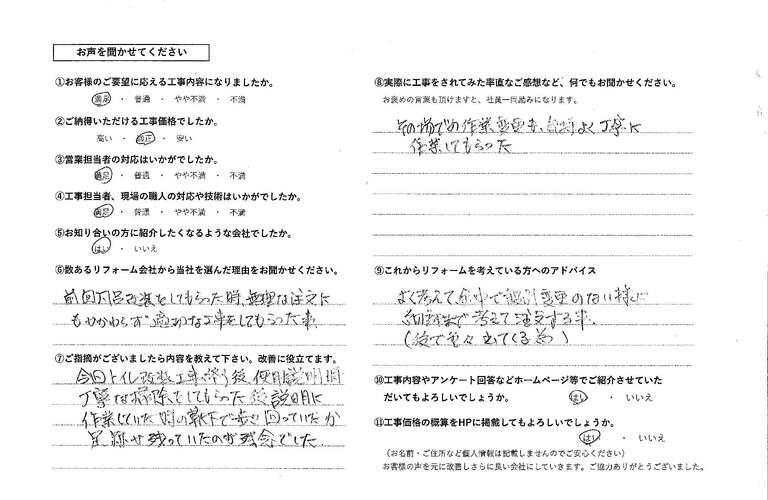 お声を聞かせてください
①お客様のご要望に応える工事内容になりましたか。
満足 ・ 普通 ・ やや不満 ・ 不満
②ご納得いただける工事価格でしたか。
高い ・ 適正 ・ 安い
③営業担当者の対応はいかがでしたか。
満足 ・ 普通 ・ やや不満 ・ 不満
④工事担当者、現場の職人の対応や技術はいかがでしたか。
満足 ・ 普通 ・ やや不満 ・ 不満
⑤お知り合いの方に紹介したくなるような会社でしたか。
はい ・ いいえ
⑥数あるリフォーム会社から当社を選んだ理由をお聞かせください。
前回 改装をしてもらった時、無理な注文に
もかかわらず 適切な工事をしてもらった事.
⑦ご指摘がございましたら内容を教えて下さい。改善に役立てます。
今回トイレ改装工事 後、使用説明時
丁寧な掃除をしてもらった後 説明に
作業していた時の靴下で歩き回っていたか
足跡が残っていたのが残念でした.
⑧実際に工事をされてみた率直なご感想など、何でもお聞かせください。
お褒めの言葉も頂けますと、社員一同励みになります。
その場での作業変更も、 よく丁寧に
作業してもらった
⑨これからリフォームを考えている方へのアドバイス
よく考えて 途中で 変更のない様に
細部まで考えて注文する事.
(後で色々出てくる為)
⑩工事内容やアンケート回答などホームページ等でご紹介させていた
だいてもよろしいでしょうか。 はい ・ いいえ
⑪工事価格の概算をHPに掲載してもよろしいでしょうか。
はい ・ いいえ
(お名前・ご住所など個人情報は記載しませんのでご安心ください)
お客様の声を元に改善しさらに良い会社にしていきます。ご協力ありがとうございました。